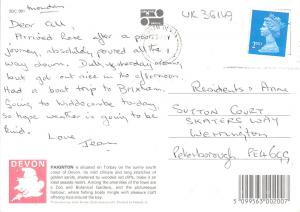 2DC 991
Monday
UK 36149
Dear All,
Arrived here after a poor
journey, absolutely poured all the
way down. Dull yesterday morning
but got out nice in the afternoon.
Had a boat trip to Brixham.
Going to Widdecombe today,
so hope weather is going to be
kind.
Love
Jean
2ND
Residents & Anne
SUTTON COURT
SKATERS WAY
Werrington
Peterborough PE4 6
DEVON
PAIGNTON is situated on Torbay on the sunny south
coast of Devon. Its mild climate and long stretches of
golden sands, sheltered by wooded red cliffs, make it an
ideal seaside resort. Among the amenities of the town are
a Zoo and Botanical Gardens, and the picturesque
harbour, where fishing boats mingle with pleasure craft
offering trips around the bay.
5 099563 002007